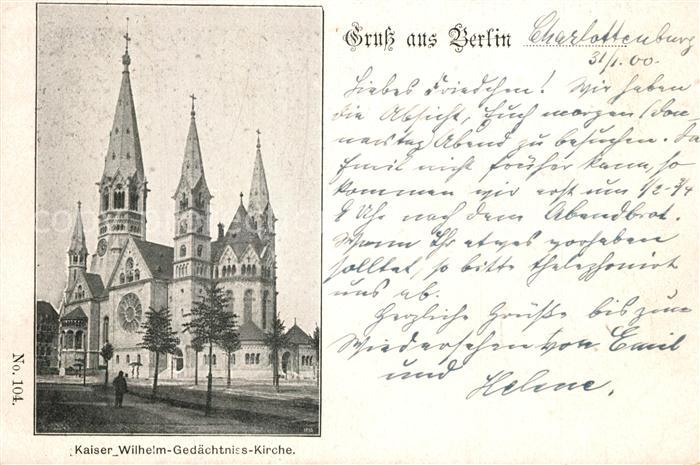 Gruß aus Berlin Charlottenburg
31/1.00.
Liebes Friedchen! Wir haben
die Absicht, Euch morgen (Don-
nerstag) Abend zu besuchen. Da
Emil nicht früher kann, so
kommen wir erst um 1/2 - 3/4
9 Uhr nach dem Abendbrot.
Wenn Ihr etwas vorhaben
solltet, so bitte thelephonirt
uns ab.
Herzliche Grüße bis zum
Wiedersehen von Emil
und Helene.
No. 104.
Kaiser Wilhelm-Gedächtniss-Kirche.